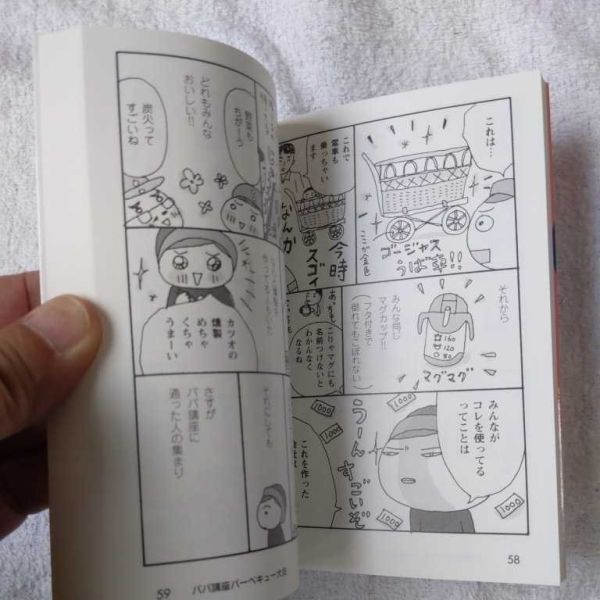 これは…
ゴージャス
うば車!!
ここが金色
これで
電車も
乗っちゃい
ます
今時
スゴイ
なんか
それから
みんな同じ
マグカップ!!
(フタ付きで
倒れてもこぼれない)
160
120
80
マグマグ
こりゃマグにも
名前つけないと
わかんなく
なるね
みんなが
コレを使ってる
ってことは
うーんすごいぞ
これを作った
1000
1000
1000
1000
1000
58
野菜も
ちがーう
どれもみんな
おいしい!!
炭火って
すごいね
カツオの
燻製
めちゃ
くちゃ
うまーい
それにしても
さすが
パパ講座に
通った人の集まり
59
パパ講座バーベキュー大会